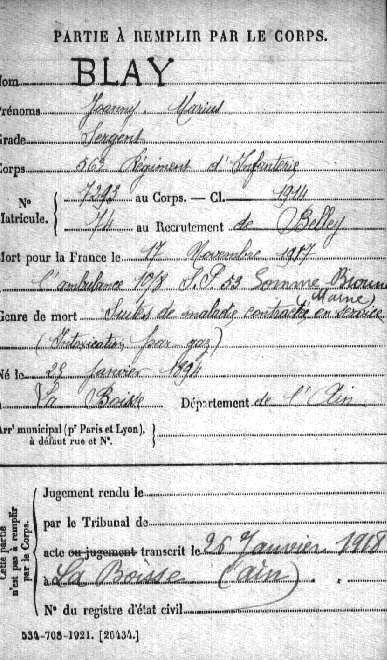 PARTIE À REMPLIR PAR LE CORPS.
Nom BLAY
Prénoms Joanny Marius
Grade Sergent
Corps 363 Régiment d'Infanterie
N° Matricule. { 7293 au Corps. — Cl. 1914
74 au Recrutement de Belley
Mort pour la France le 17 Novembre 1917
à l'ambulance 10/8 S.P 53 Somme
(Marne)
Genre de mort Suites de maladie contractée en service
(Intoxication par gaz)
Né le 23 Janvier 1894
à La Boisse Département de l'Ain
Arr' municipal (p' Paris et Lyon), à défaut rue et N°. }
Cette partie n'est pas à remplir par le Corps.
Jugement rendu le
par le Tribunal de
acte ou jugement transcrit le 26 Janvier 1918
à La Boisse (Ain)
N° du registre d'état civil
534-708-1921. [26434.]